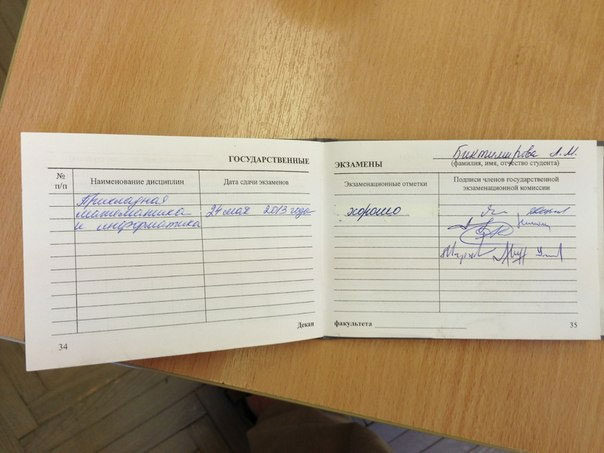 ГОСУДАРСТВЕННЫЕ
№ п/п
Наименование дисциплин
Дата сдачи экзаменов
Прикладная
математика
и информатика
24 мая 2013 года
Декан
34
ЭКЗАМЕНЫ
Биктимирова Л.М.
(фамилия, имя, отчество студента)
Экзаменационные отметки
Подписи членов государственной
экзаменационной комиссии
хорошо
факультета
35